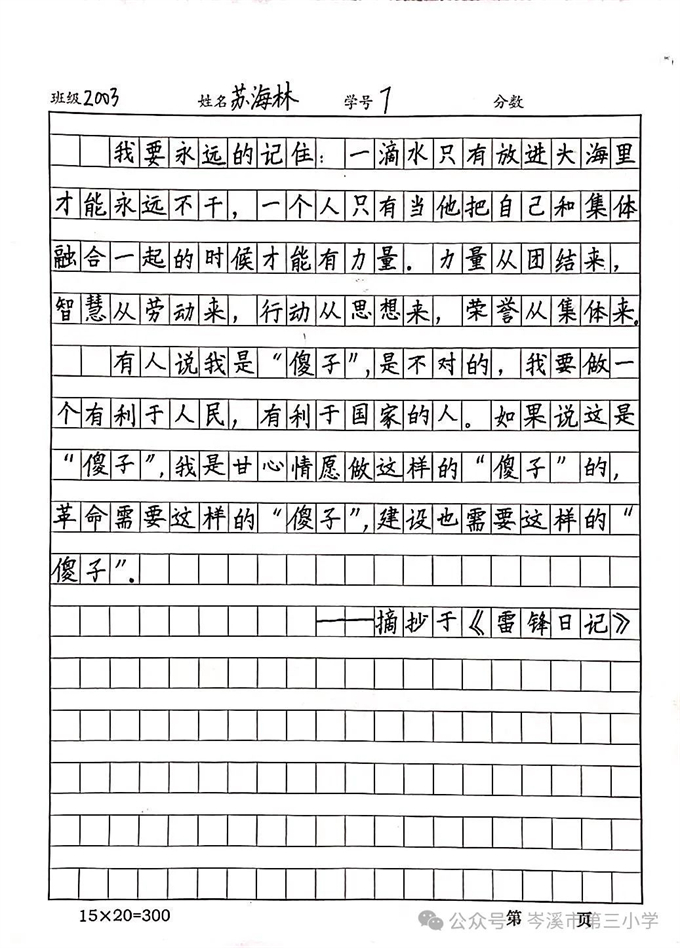 班级2003 姓名苏海林 学号7 分数
我要永远的记住：一滴水只有放进大海里
才能永远不干，一个人只有当他把自己和集体
融合一起的时候才能有力量．力量从团结来，
智慧从劳动来，行动从思想来，荣誉从集体来．
有人说我是“傻子”，是不对的，我要做一
个有利于人民，有利于国家的人。如果说这是
“傻子”，我是甘心情愿做这样的“傻子”的，
革命需要这样的“傻子”，建设也需要这样的“
傻子”．
——摘抄于《雷锋日记》
15×20=300 第 页
公众号 岑溪市第三小学